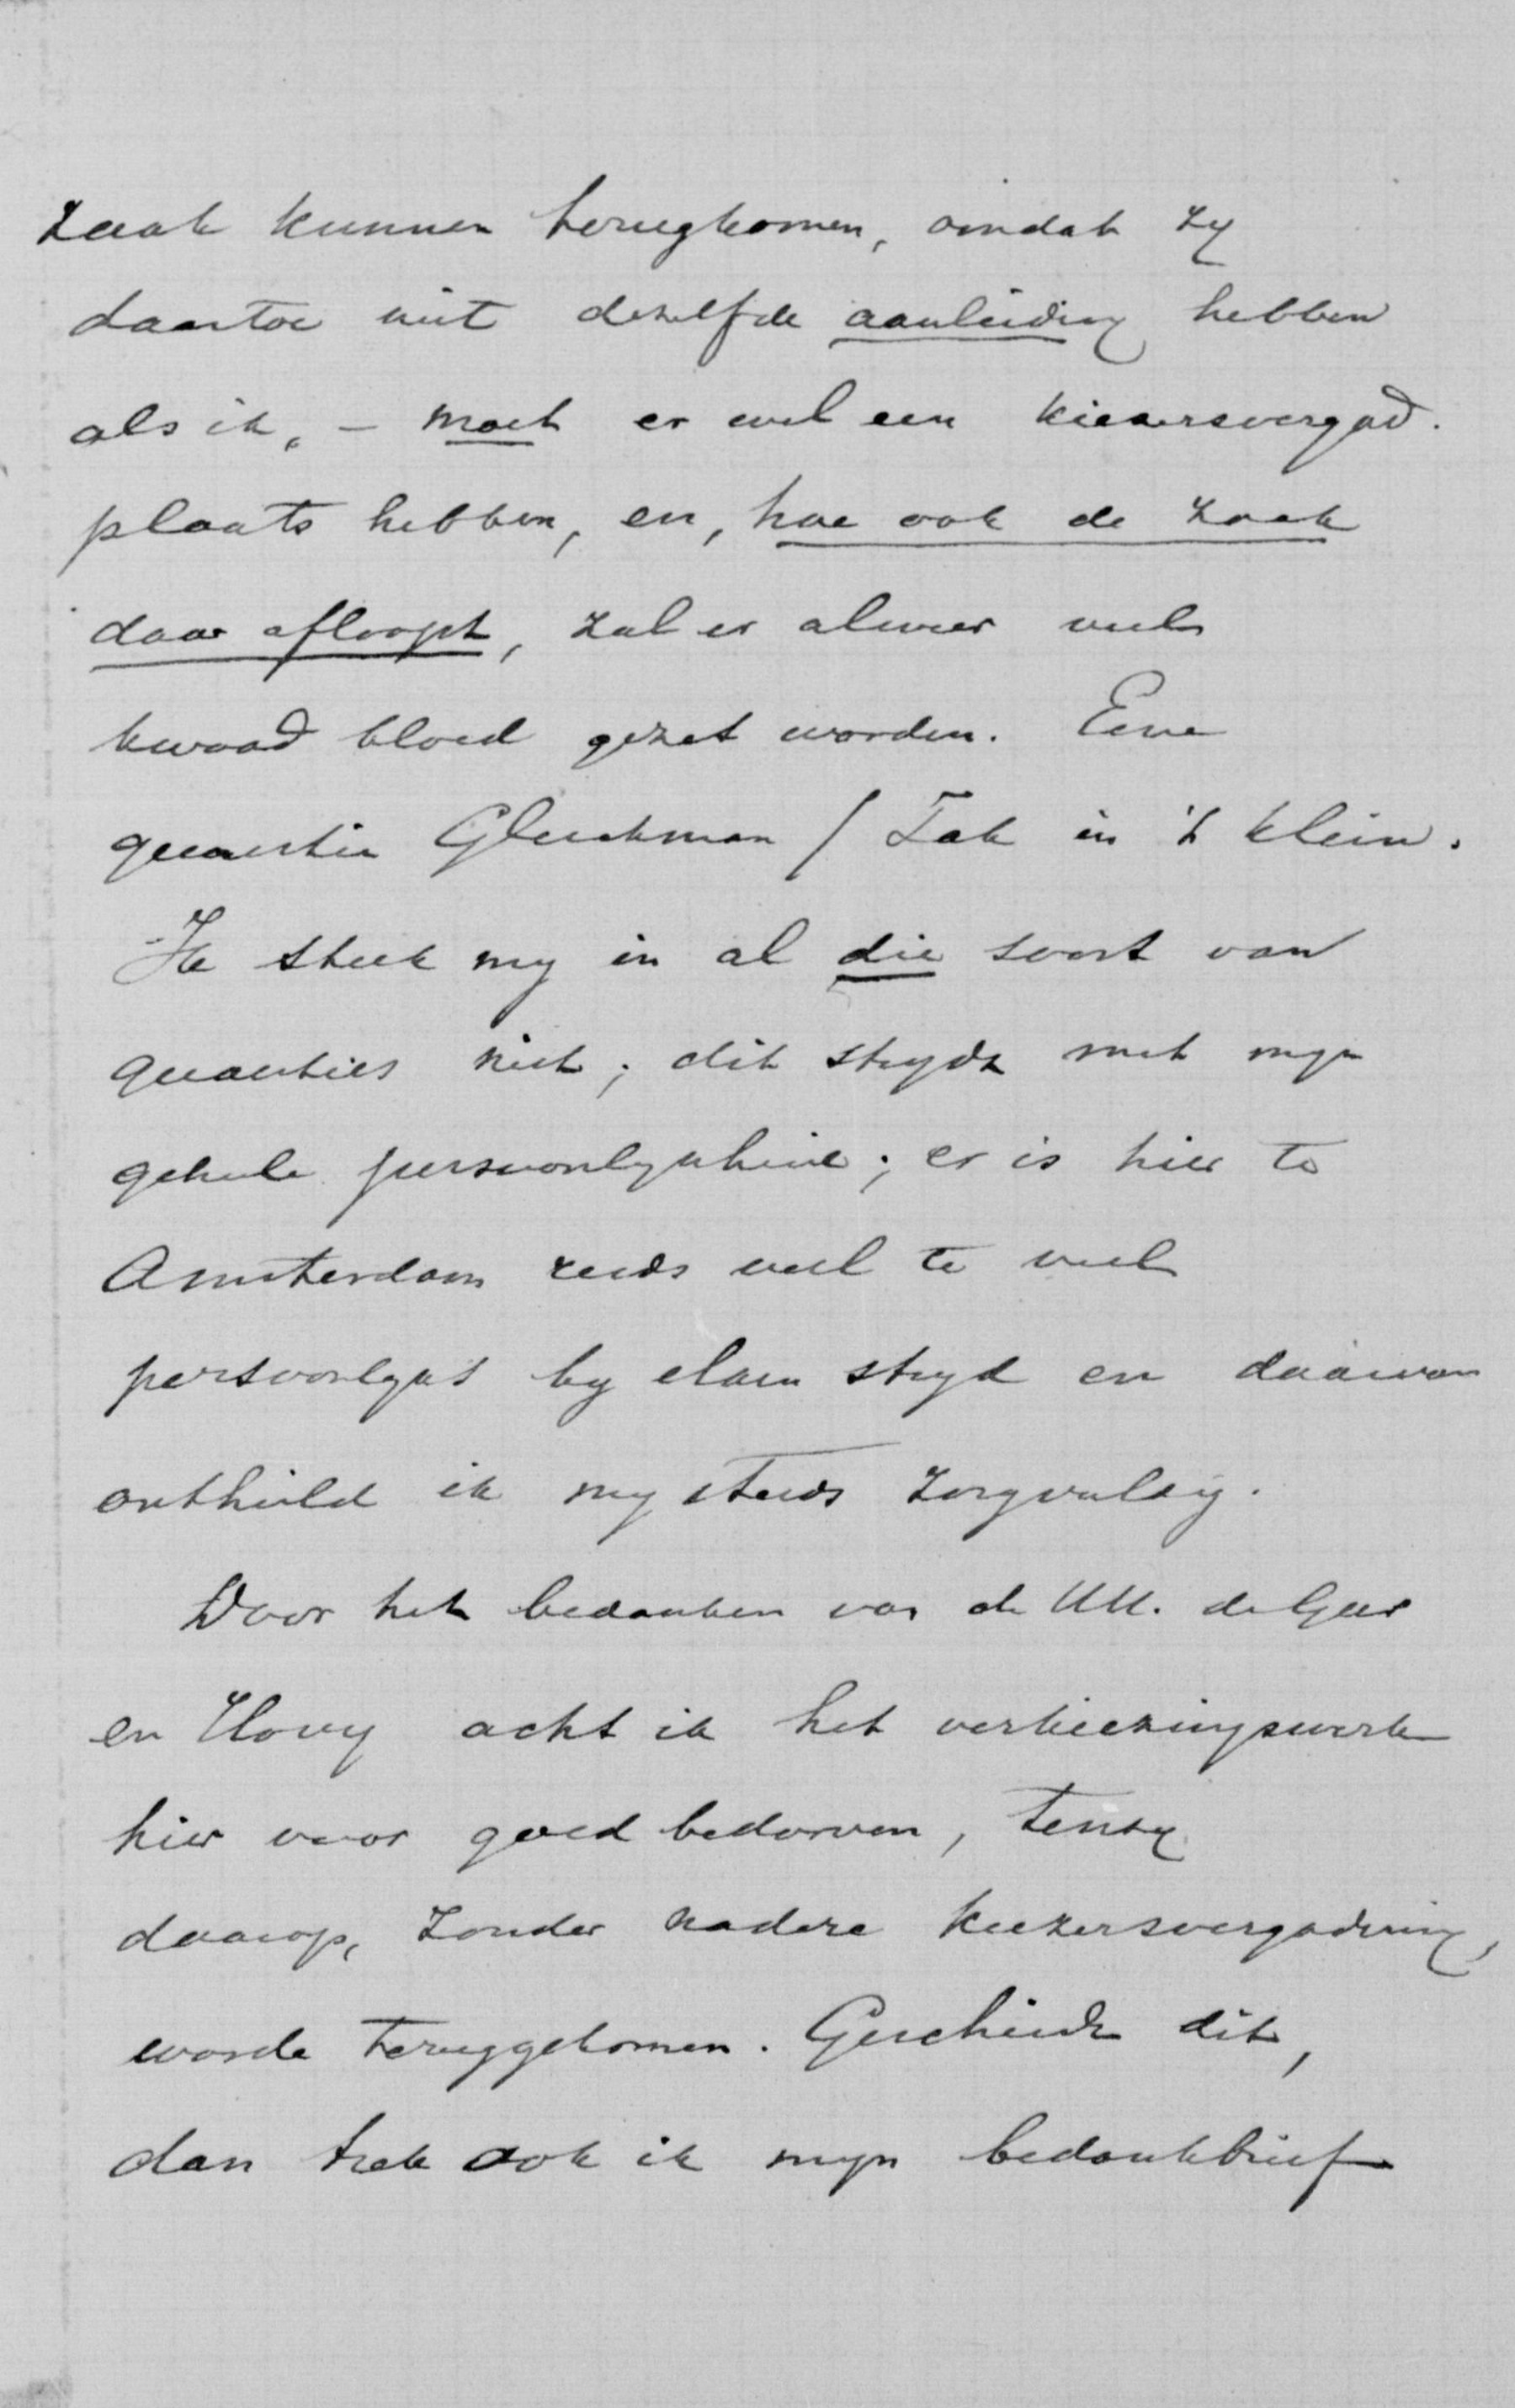 zaak kunnen terugkomen, omdat zy
daartoe niet dezelfde aanleiding hebben
als ik, – moet er wel een kiezersvergad.
plaats hebben, en, hoe ook de zaak
daar afloopt, zal er alweer veel
kwaad bloed gezet worden. Eene
quaestie Gleuckman / Tak in 't klein.
Ik steek my in al die soort van
quaesties niet; dit strydt met myn
geheele persoonlykheid; er is hier te
Amsterdam reeds veel te veel
persoonlyks by elken stryd en daarvan
onthield ik my steeds zorgvuldig.
Door het bedanken van de HH. de Geer
en Hovy acht ik het verkiezingswerk
hier voor goed bedorven, tenzy
daarop, zonder nadere kiezersvergadering,
worde teruggekomen. Geschiedt dit,
dan trek ook ik myn bedankbrief